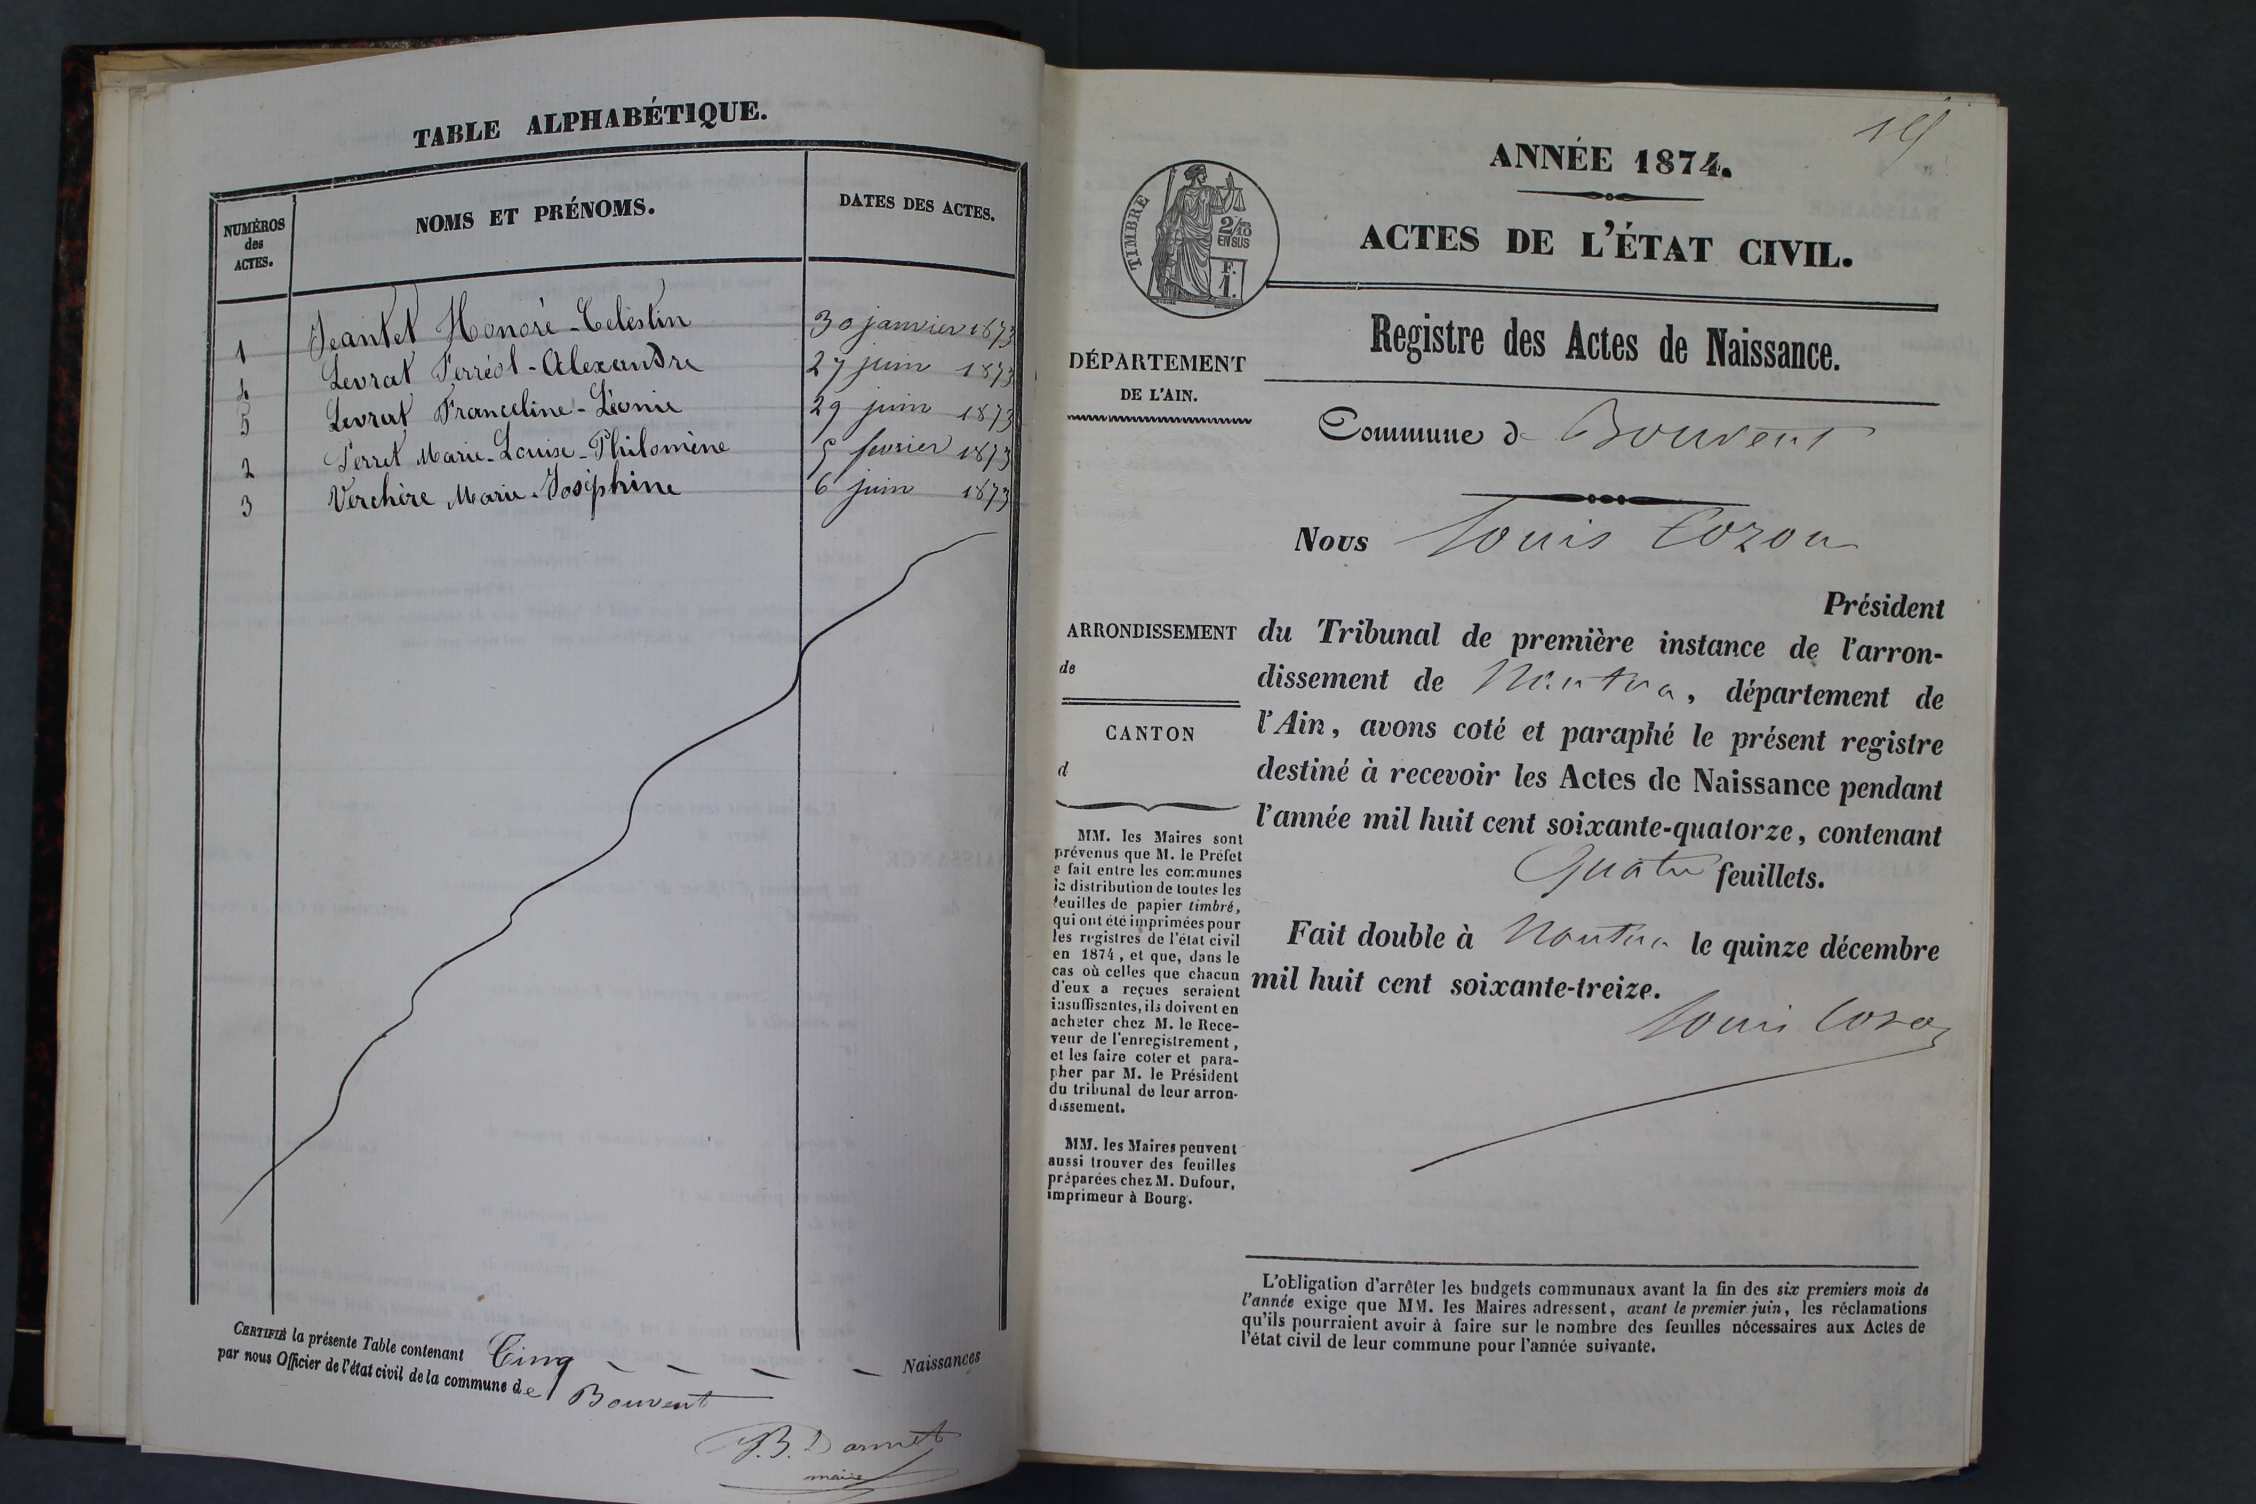 TABLE ALPHABÉTIQUE.
NUMÉROS
des
ACTES.
NOMS ET PRÉNOMS.
DATES DES ACTES.
1 Jeantet Honoré-Celéstin 30 janvier 1873
4 Levrat Ferréol-Alexandre 27 juin 1873
5 Levrat Franceline-Léonie 29 juin 1873
2 Perret Marie-Louise-Philomène 5 fevrier 1873
3 Verchère Marie-Joséphine 6 juin 1873
CERTIFIÉ la présente Table contenant Cinq Naissances
par nous Officier de l'état civil de la commune de Bouvent
maire
ANNÉE 1874.
TIMBRE
2/10
EN SUS
F.
1.
ACTES DE L'ÉTAT CIVIL.
Registre des Actes de Naissance.
DÉPARTEMENT
DE L'AIN.
Commune d Bouvent
Nous Louis Cozon
Président
ARRONDISSEMENT
de
CANTON
d
du Tribunal de première instance de l'arron-
dissement de Nantua, département de
l'Ain, avons coté et paraphé le présent registre
destiné à recevoir les Actes de Naissance pendant
l'année mil huit cent soixante-quatorze, contenant
Quatre feuillets.
Fait double à Nantua le quinze décembre
mil huit cent soixante-treize.
Louis Cozon
MM. les Maires sont
prévenus que M. le Préfet
a fait entre les communes
la distribution de toutes les
feuilles de papier timbré,
qui ont été imprimées pour
les registres de l'état civil
en 1874, et que, dans le
cas où celles que chacun
d'eux a reçues seraient
insuffisantes, ils doivent en
acheter chez M. le Rece-
veur de l'enregistrement,
et les faire coter et para-
pher par M. le Président
du tribunal de leur arron-
dissement.
MM. les Maires peuvent
aussi trouver des feuilles
préparées chez M. Dufour,
imprimeur à Bourg.
L'obligation d'arrêter les budgets communaux avant la fin des six premiers mois de
l'année exige que MM. les Maires adressent, avant le premier juin, les réclamations
qu'ils pourraient avoir à faire sur le nombre des feuilles nécessaires aux Actes de
l'état civil de leur commune pour l'année suivante.